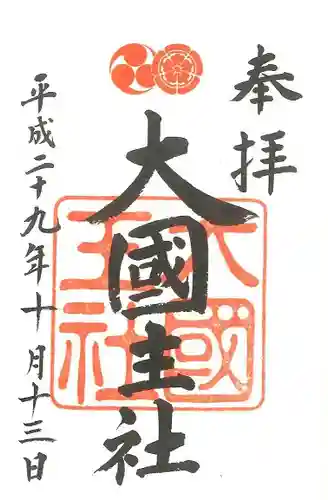 奉拝
大國主社
大國主社
平成二十九年十月十三日